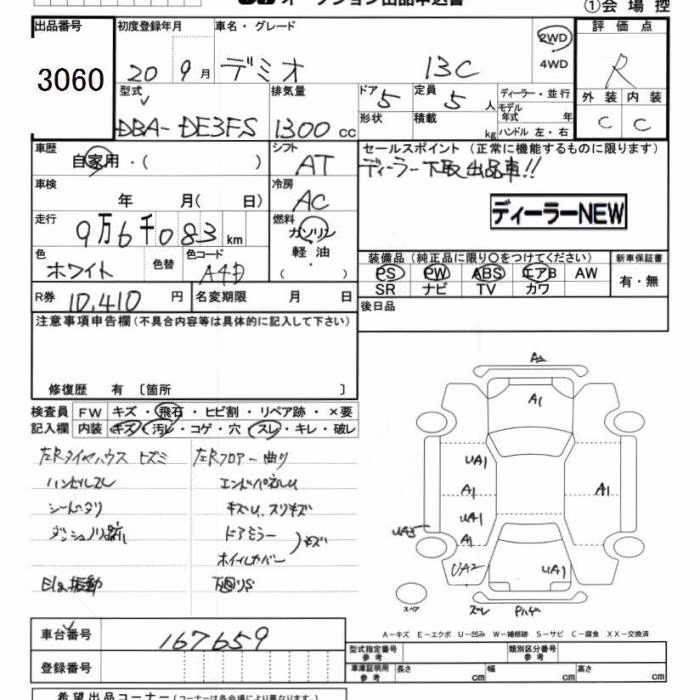 オークション出品申込書
①会場控
出品番号 初度登録年月 車名・グレード 評価点
3060 20 9月 デミオ 13C 2WD 4WD R
型式 排気量 ドア 定員 ディーラー・並行 外装 内装
DBA-DE3FS 1300 cc 5 5 人 モデル年式 年 C C
形状 積載 kg ハンドル 左・右
車歴 自家用・( ) シフト AT セールスポイント (正常に機能するものに限ります)
ディーラー下取出品車!!
車検 年 月( 日) 冷房 AC
ディーラーNEW
走行 9万6千083 km 燃料 ガソリン 軽油 ・( )
色 ホワイト 色替 色コード A4D
装備品 (純正品に限り○をつけてください) 新車保証書
PS PW ABS エアB AW 有・無
SR ナビ TV カワ
R券 10,410 円 名変期限 月 日 後日品
注意事項申告欄(不具合内容等は具体的に記入して下さい)
修復歴 有 [箇所 ]
検査員 FW キズ・飛石・ヒビ割・リペア跡・×要
記入欄 内装 キズ・汚レ・コゲ・穴・スレ・キレ・破レ
左Rタイヤハウス ヒズミ 左Rフロアー曲り
ハンドルスレ エンドパネルU
キズU、スリキズ
ドアミラー )キズ
ホイルカバー
Eg振動 下廻りS
A2
A1
UA1
A1 A1
UA1
UA5 A1
UA2 UA1
スペア スレ
A-キズ E-エクボ U-凹み W-補修跡 S-サビ C-腐食 XX-交換済
車台番号 167659 型式指定番号 参考 類別区分番号 参考
登録番号 車庫証明用 参考 長さ cm 幅 cm 高さ cm
希望出品コーナー(コーナーは各会場により異なります。)